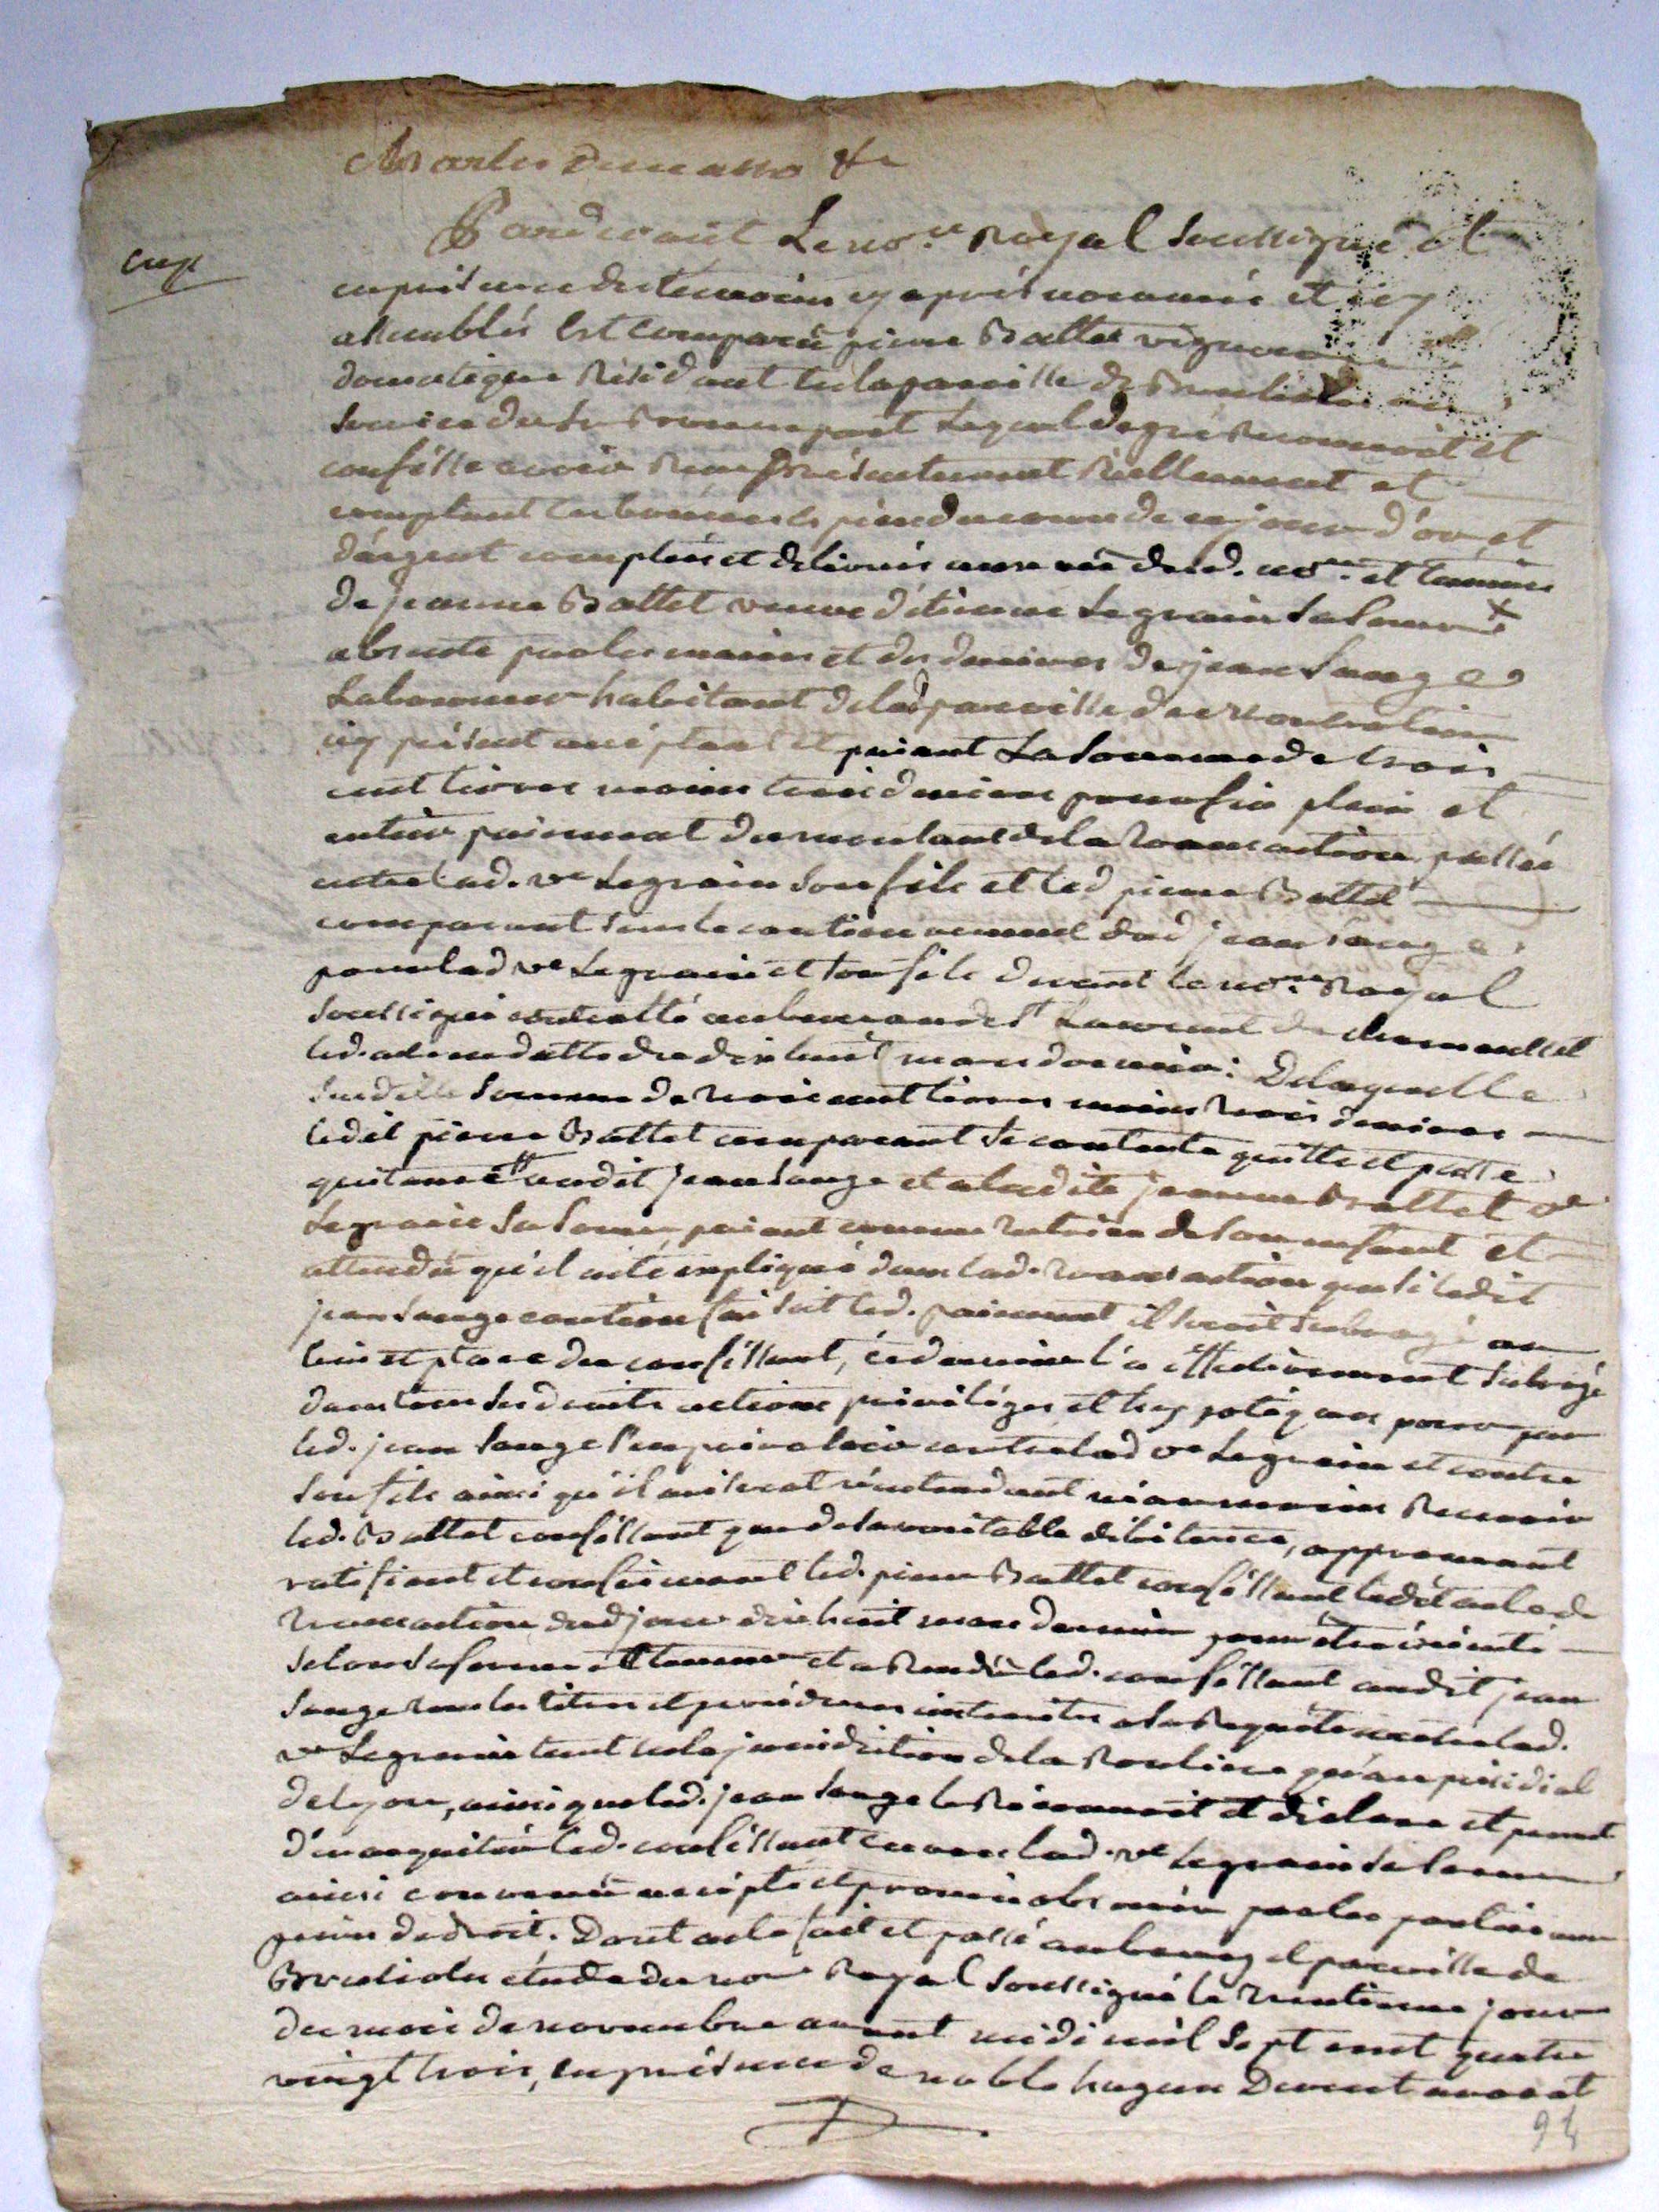 Pardevant Le no.re Royal Soussigné et
en présence des temoins cy après nommés et icy
assemblés Est Comparu pierre Battet vigneron
domestique Résidant en la paroisse de
Service du Sr Lequel de gré Reconnoit et
confesse avoir Reçu présentement Réellement et
comptant en bonnes espèces du cours de ce jour d'or et
d'argent comptés et délivrés aux vüe desd. no.re et temoins
de jeanne Battet veuve d'étienne Legrain Sa Soeur
absente par les mains et des deniers de jean Sauge
Laboureur habitant de lad paroisse de
icy présent acceptant et paiant La Somme de trois
cent livres moins trois deniers pour fin plein et
entier paiement du montant de la transaction passée
entre lad. ve Legrain Son fils et led pierre Battet
comparant Sous le cautionnement dud jean Sauge
pour lad ve Legrain et Son fils devant le no.re Royal
Soussigné au bourg de St Laurent de chamousset
led. acte en datte du dix huit mars dernier: De laquelle
Susditte Somme de trois cent livres moins trois deniers
ledit pierre Battet comparant Se contente quitte et passe
quitance audit jean Sauge et a ladite jeanne Battet ve
Legrain Sa Soeur, paiant comme tutrice de Son enfant et
attendû qu'il a été expliqué dans lad. transaction que Si ledit
jean Sauge caution faisoit led. paiement il Seroit Subrogé au
lieu et place du confessant, ce dernier l'a effectivement Subrogé
dans tous Ses droits actions privilèges et hypotéques pour par
led. jean Sauge S'en prévaloir contre lad ve Legrain et contre
Son fils ainsi qu'il aviserat n'entendant néanmoins Recevoir
led. Battet confessant que de Sa véritable débitrice, approuvant
ratifiant et confirmant led. pierre Battet confessant ledit acte de
transaction dud jour dix huit mars dernier pour être éxécuté
Selon Sa forme et teneur et a Remis led. confessant audit jean
Sauge tous les titres et procédures intentées a Sa Requête contre lad.
ve Legrain tant en la juridiction de la qu'au présidial
de Lyon, ainsi que led. jean Sauge le Reconnoit et déclare et promet
d'en acquiter led. confessant envers lad. ve Legrain Sa Soeur
ainsi convenû accepté et promis observer par les parties aux
peines de droit. Dont acte fait et passé au bourg et paroisse de
Brulioles étude du no.re Royal Soussigné le trentieme jour
du mois de novembre avant midi mil Sept cent quatre
vingt trois, en présence de noble hugues Durent avocat
94